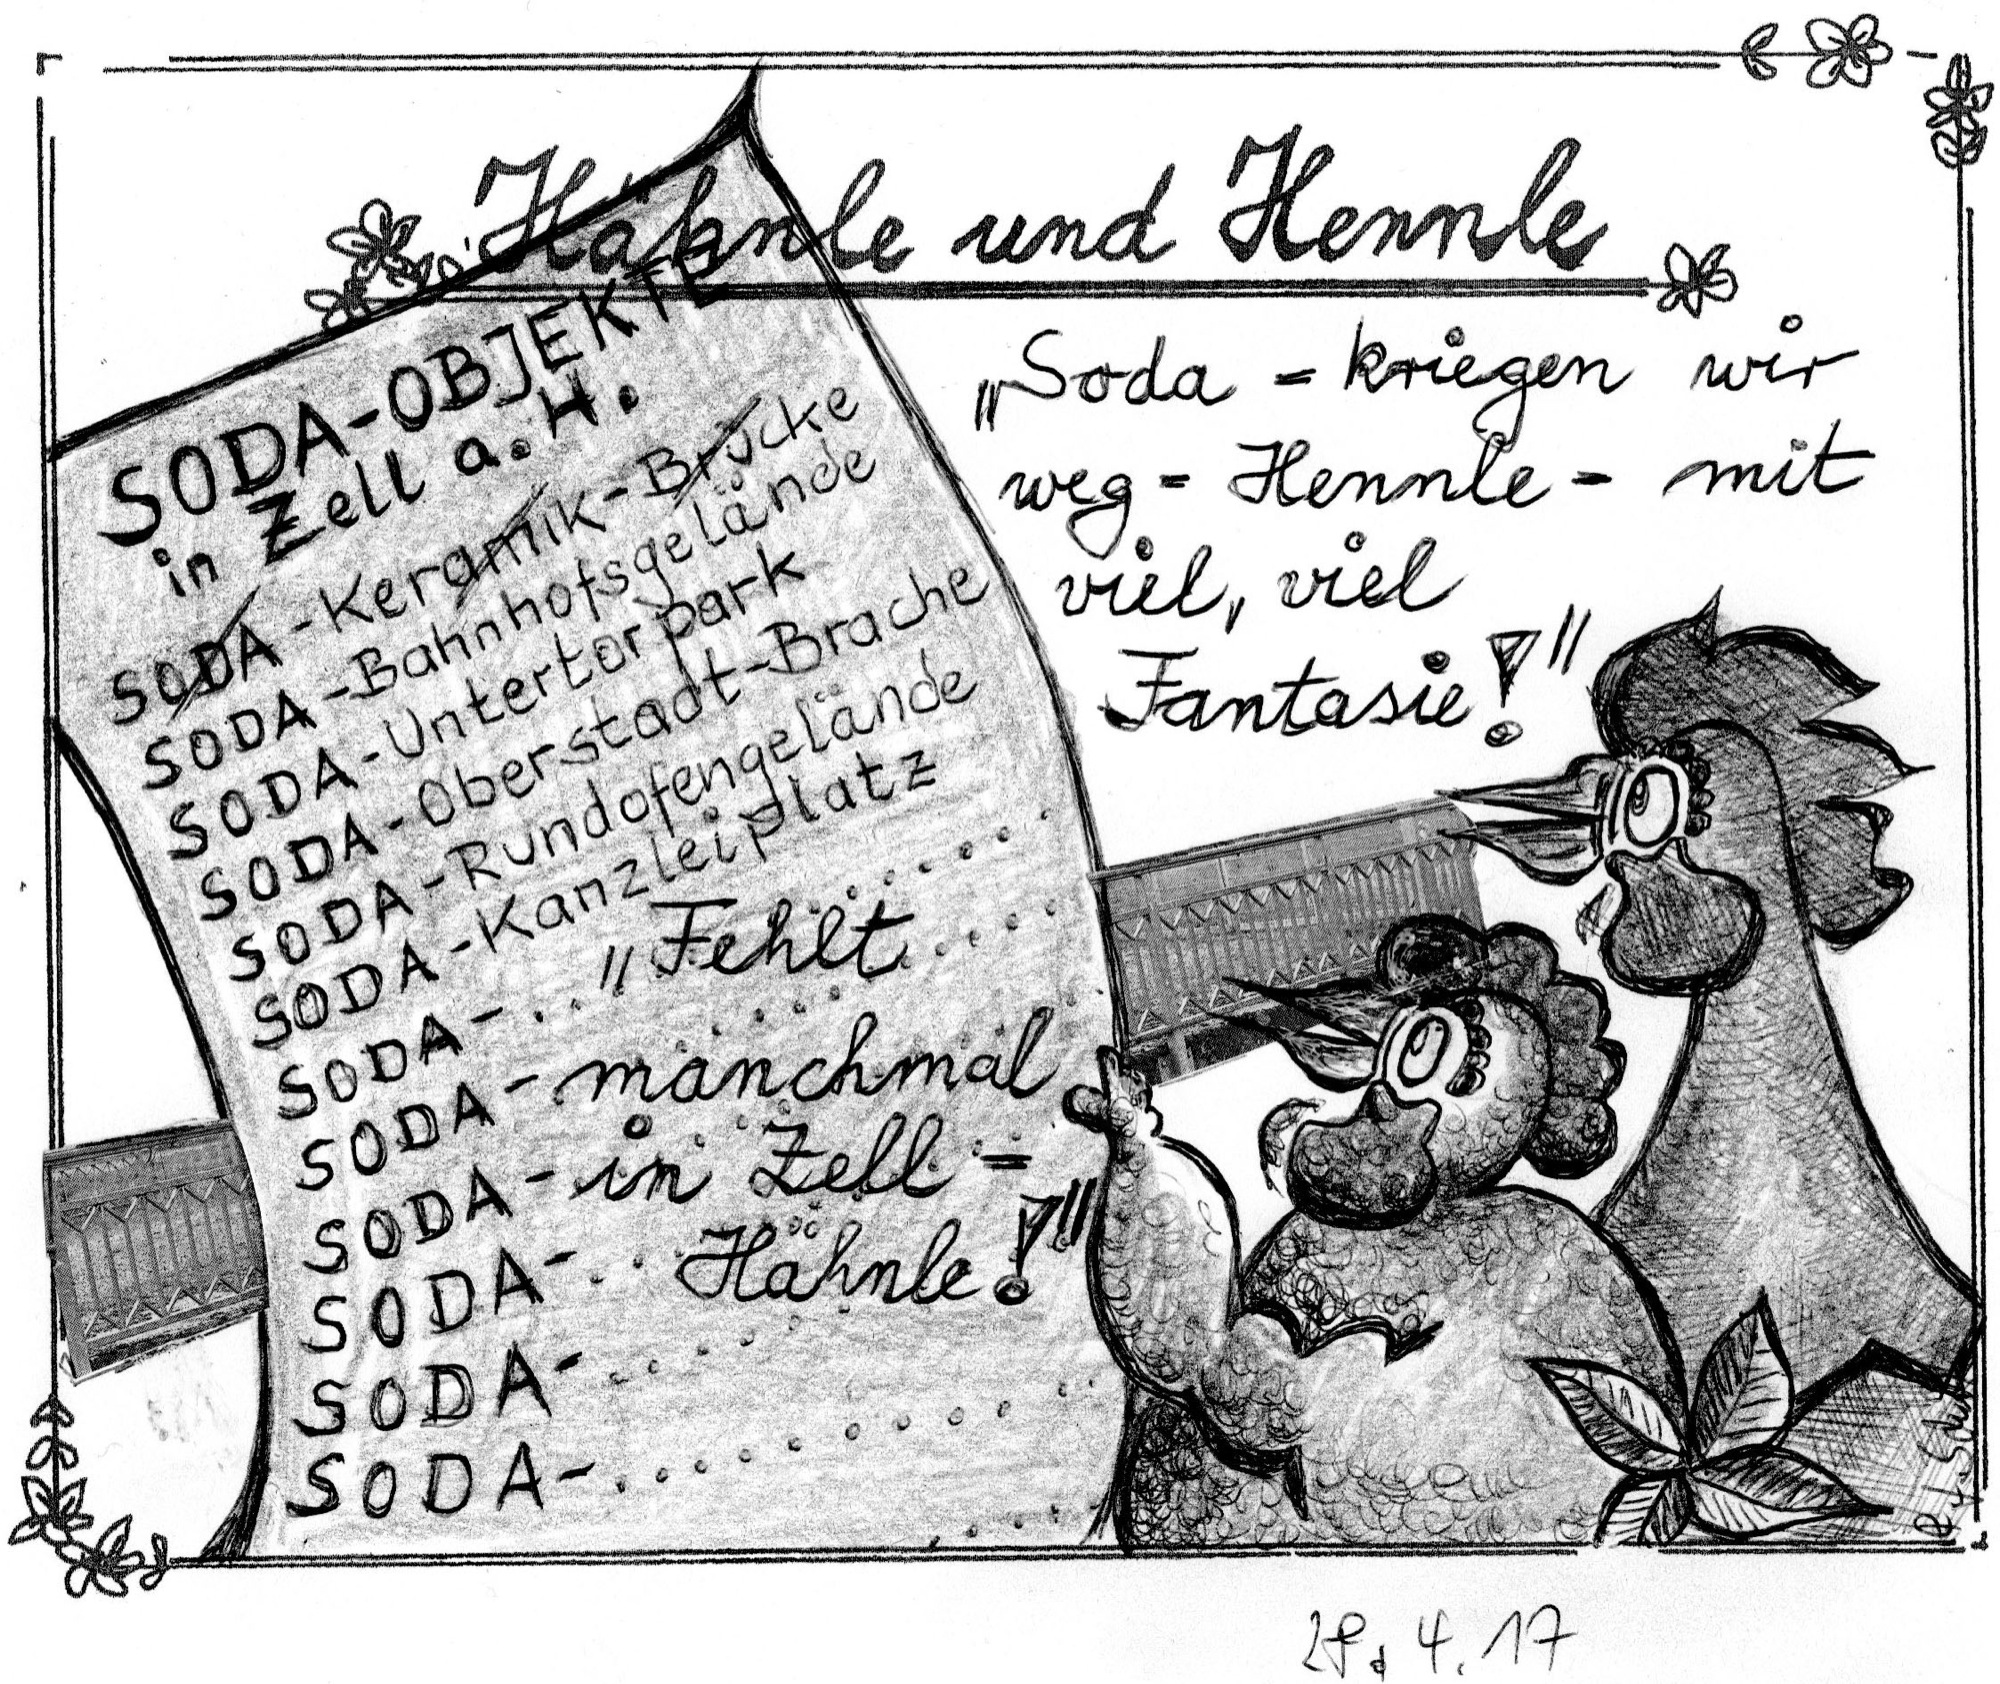 Hähnle und Hennle
SODA-OBJEKTE
in Zell a. H.
SODA-Keramik-Brücke
SODA-Bahnhofsgelände
SODA-Untertorpark
SODA-Oberstadt-Brache
SODA-Rundofengelände
SODA-Kanzleiplatz
SODA-...
SODA-
SODA-
SODA-..
SODA-.....
SODA-.........
„Soda = kriegen wir
weg = Hennle = mit
viel, viel
Fantasie!"
„Fehlt
manchmal
in Zell =
Hähnle!"
4.17